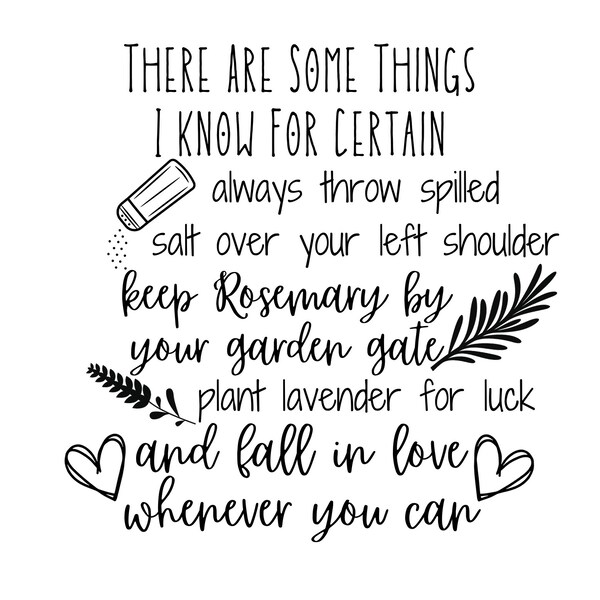 THERE ARE SOME THINGS
I KNOW FOR CERTAIN
always throw spilled
salt over your left shoulder
keep Rosemary by
your garden gate
plant lavender for luck
and fall in love
whenever you can